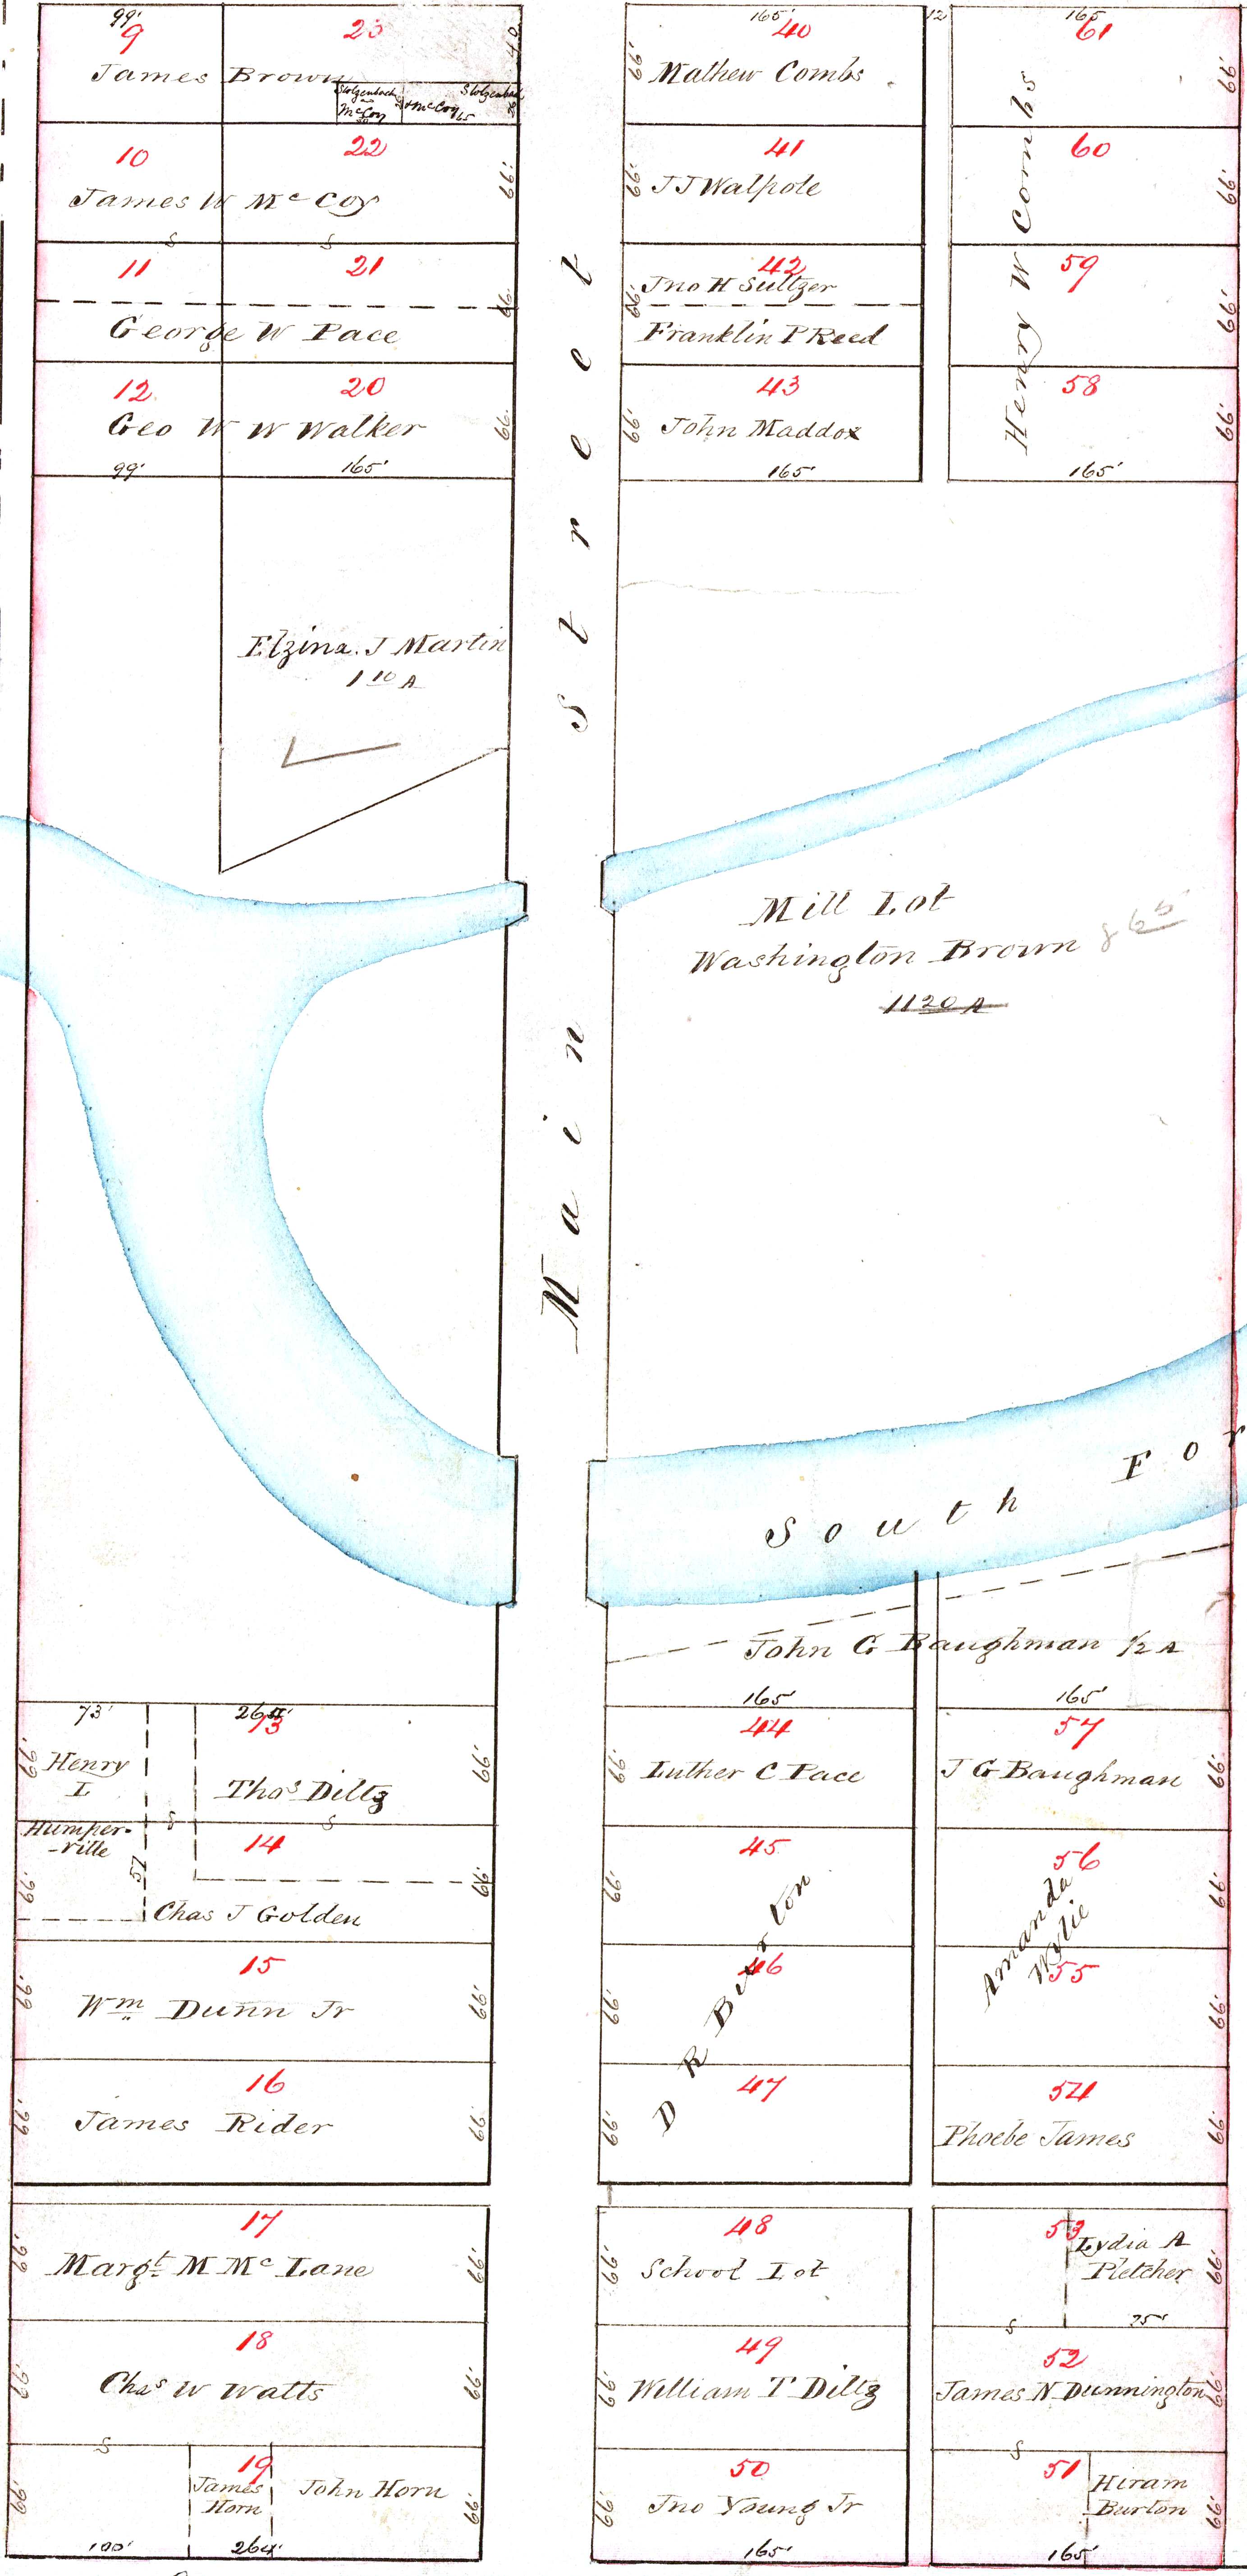 99'
9
23
40
James Brown
Stolzenbach
McCoy
Stolzenbach
& McCoy
65
10
22
66.
James W Mc Coy
S S
11
21
66.
George W Pace
12
20
66.
Geo W W Walker
99'
165'
Elzina. J Martin
1 10 A
Main Street
165'
40
66.
Mathew Combs
12
165
61
66.
41
66.
J J Walpole
60
66.
42
66.
Jno H Sultzer
Franklin P Reed
59
66.
43
66.
John Maddox
165'
58
66.
165'
Henry W Combs
Mill Lot
Washington Brown
1120 A
South For
John G Baughman 1/2 A
73'
264'
13
66.
66.
Henry
L
Humper-
-ville
57
Thos Diltz
S S
14
66.
66.
Chas J Golden
15
66.
66.
Wm Dunn Jr
16
66.
66.
James Rider
17
66.
66.
Margt M Mc Lane
18
66.
66.
Chas W Watts
S
19
66.
66.
James
Horn
John Horn
100'
264'
165'
44
66.
Luther C Pace
165'
57
66.
J G Baughman
45
66.
46
66.
47
66.
D R Burton
56
66.
55
66.
Amanda
Wylie
54
66.
Phoebe James
48
66.
School Lot
53
66.
Lydia A
Pletcher
75'
S
49
66.
William T Diltz
52
66.
James N Dunnington
S
50
66.
Jno Young Jr
165'
51
66.
Hiram
Burton
165'